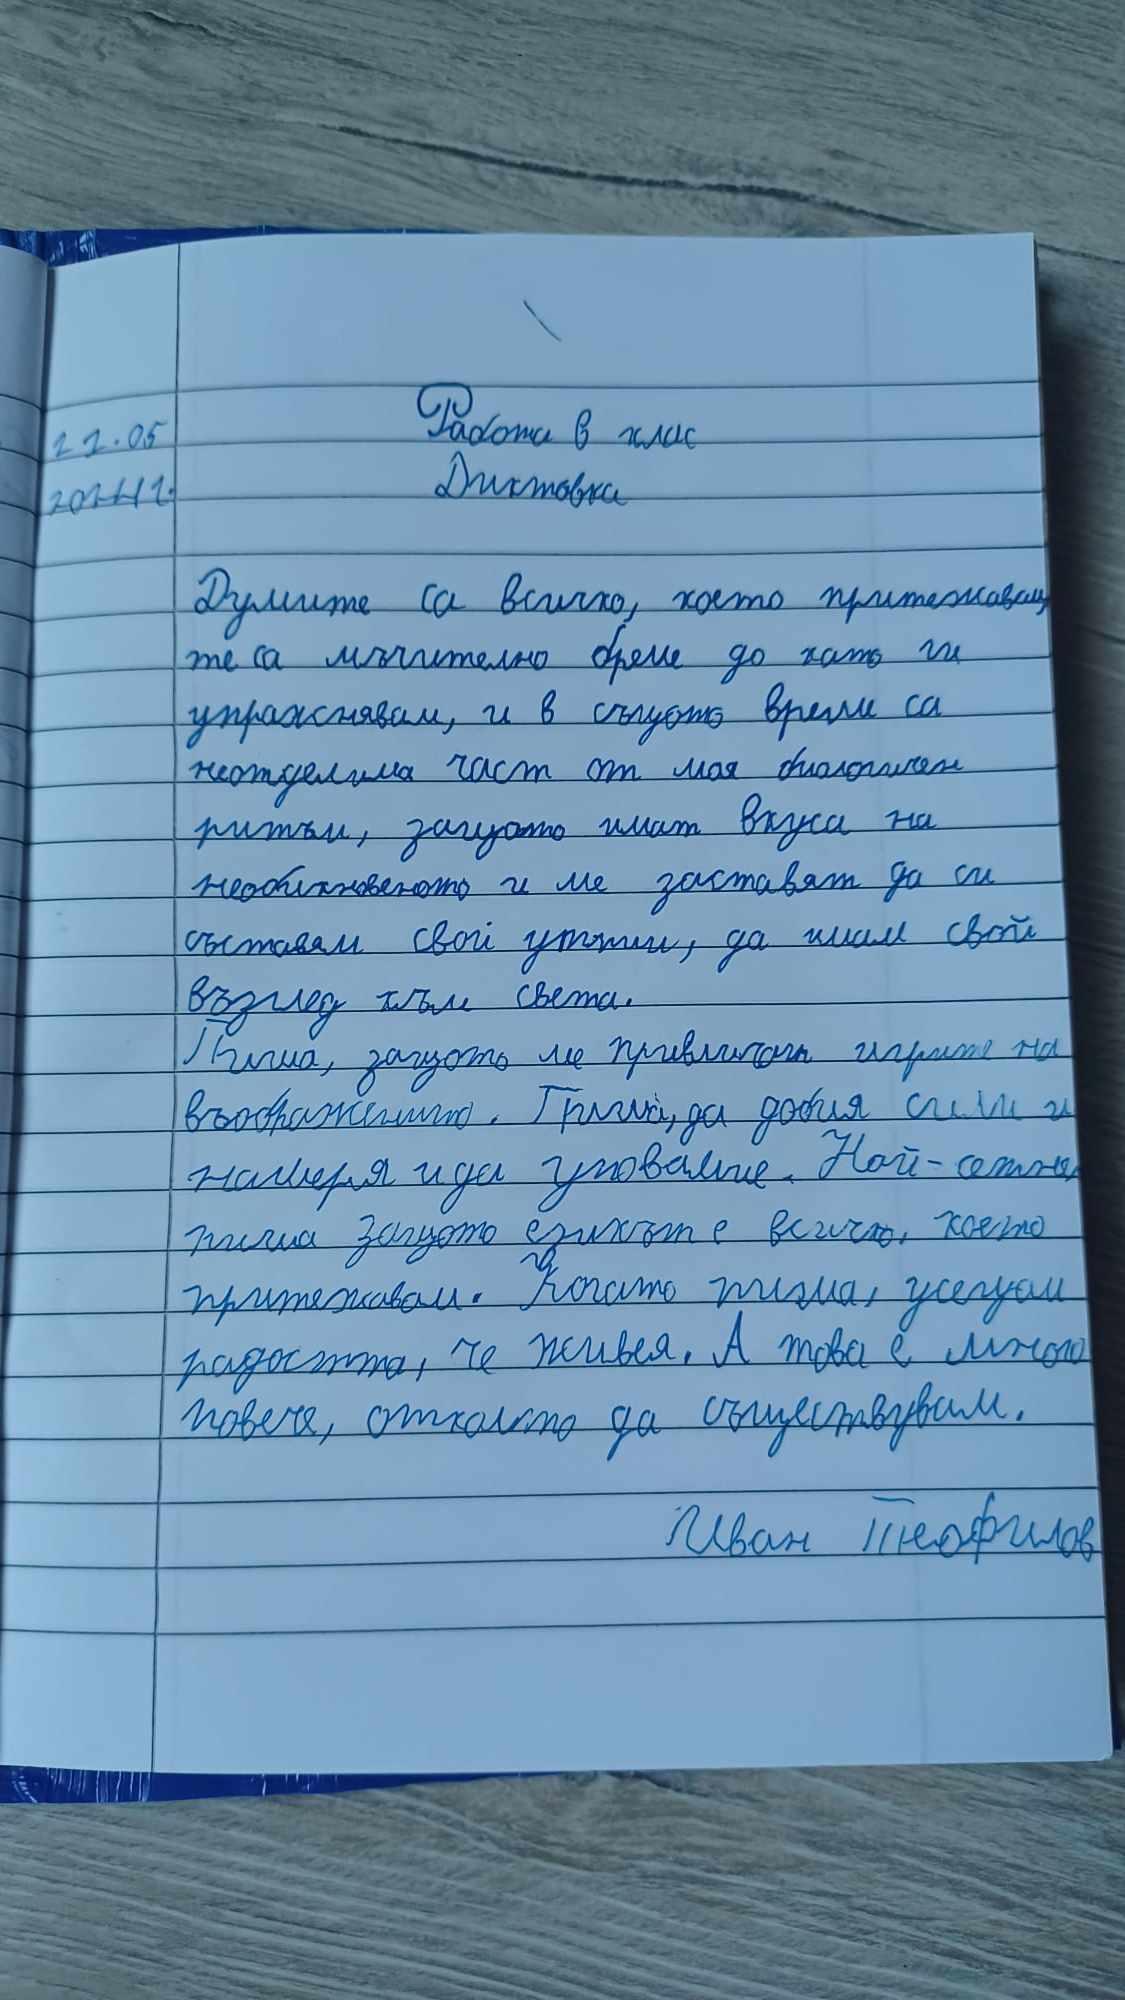 Работа в клас
22.05
Диктовка
Думите са всичко, което притежавам,
те са мъчително бреме до като ги
упражнявам, и в същото време са
неотделима част от моя биологичен
ритъм, защото имат вкуса на
необикновеното и ме заставят да си
съставям свой утпии, да имам свой
възглед към света.
Пиша, защото ме привличат игрите на
въображението. Пиша, да добия сили и
намеря и да упование. Най-сетне,
пиша защото езикът е всичко, което
притежавам. Когато пиша, усещам
радостта, че живея. А това е много
повече, отколкото да съществувам.
Иван Теофилов